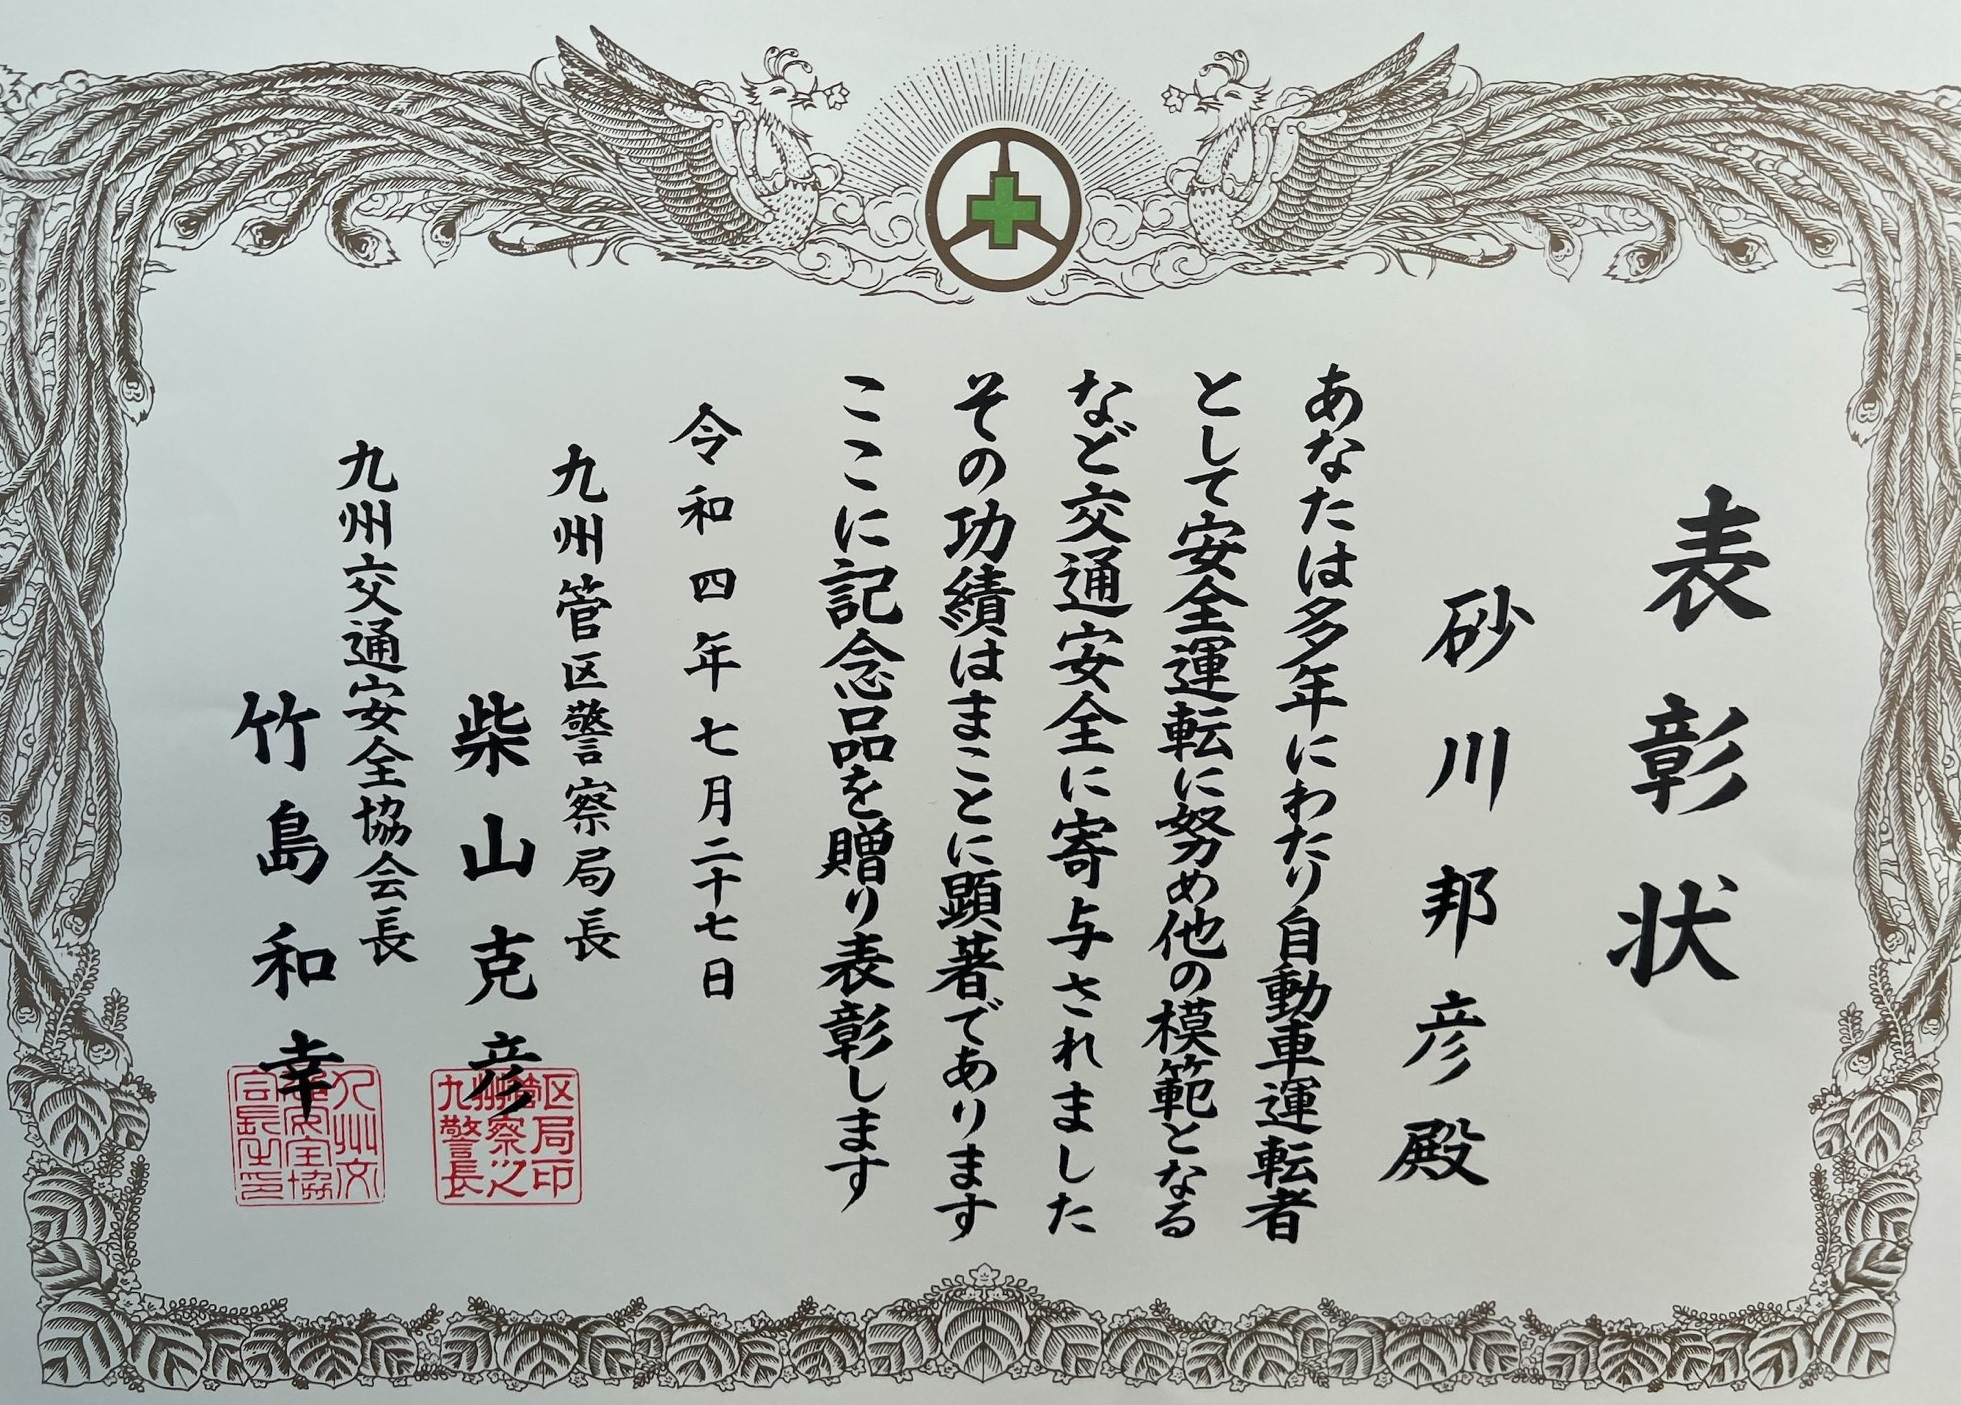 表彰状
砂川邦彦殿
あなたは多年にわたり自動車運転者
として安全運転に努め他の模範となる
など交通安全に寄与されました
その功績はまことに顕著であります
ここに記念品を贈り表彰します
令和四年七月二十七日
九州管区警察局長
柴山克彦
九州交通安全協会長
竹島和幸